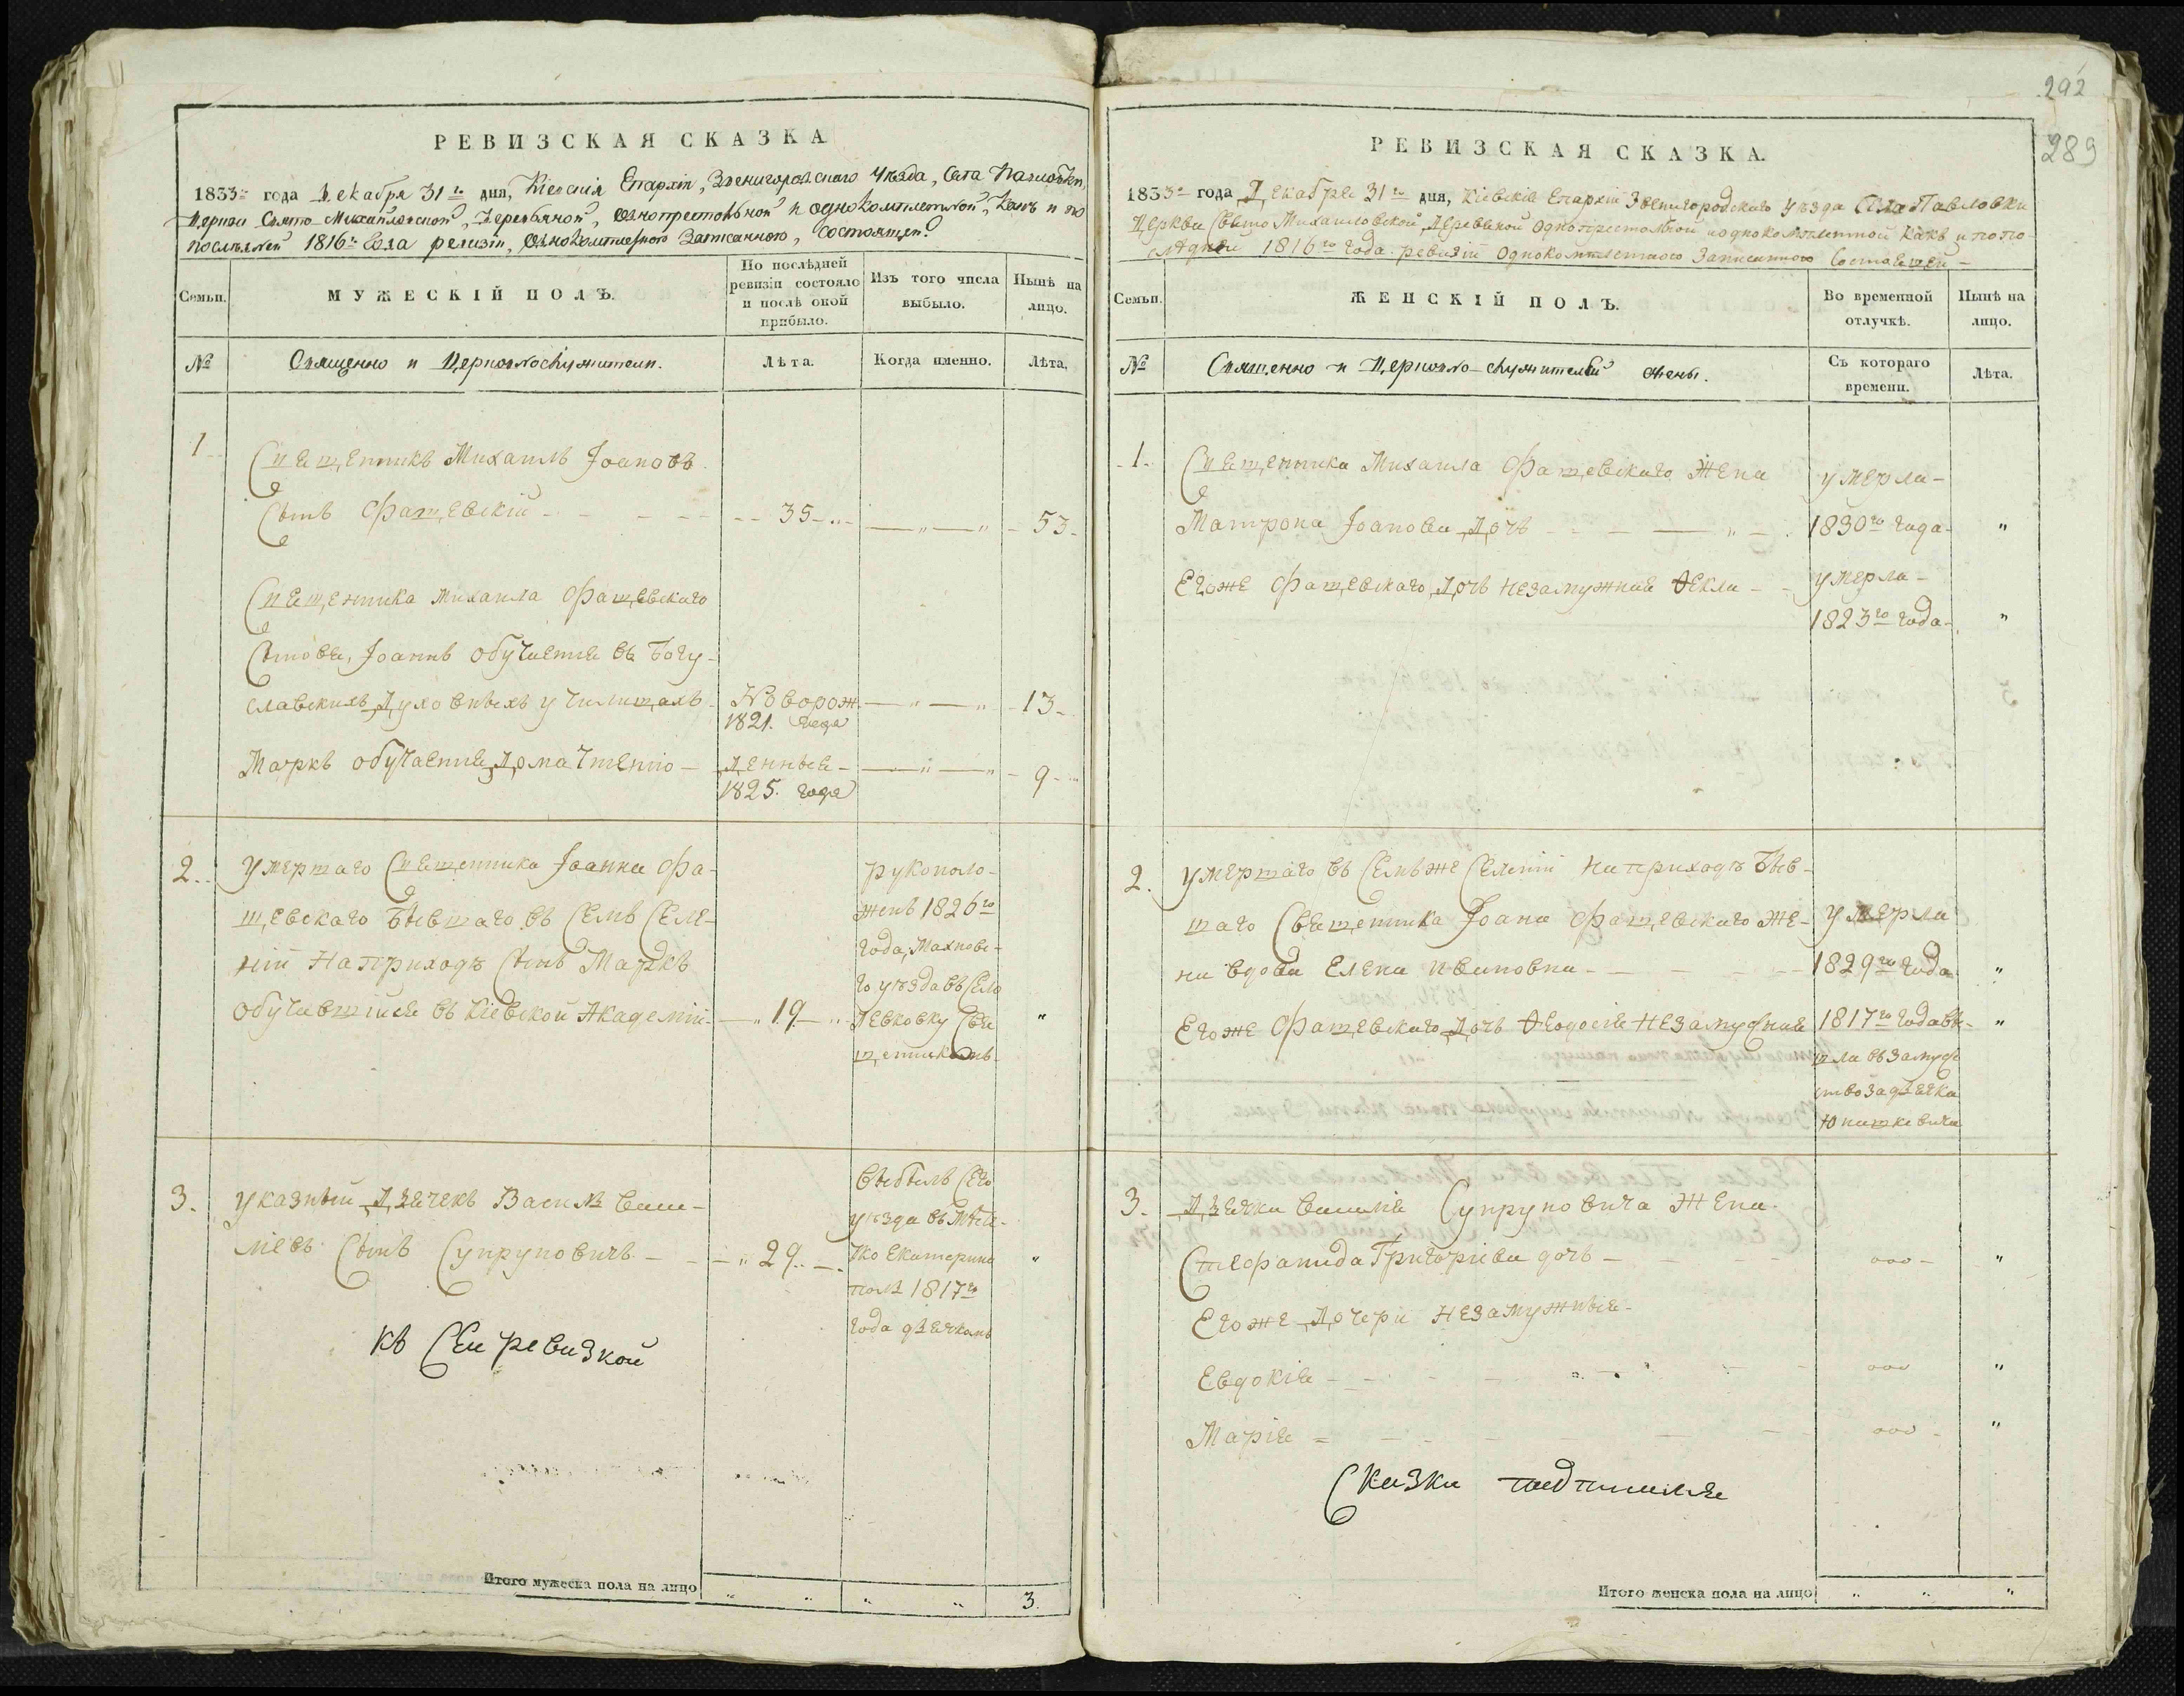 292
289
РЕВИЗСКАЯ СКАЗКА
1833го года Декабря 31го дня, Кіевскія Епархіи, Звенигородскаго Уѣзда, Села Павловки,
Церкви Свято-Михайловской, Деревянной, однопрестольной и однокомплектной, какъ и по
послѣдней 1816го года ревизіи, однокомплектною Записанною, состоящей
Семьи.
МУЖЕСКІЙ ПОЛЪ.
По послѣдней
ревизіи состояло
и послѣ оной
прибыло.
Изъ того числа
выбыло.
Нынѣ на
лицо.
№
Священно и Церковнослужители.
Лѣта.
Когда именно.
Лѣта.
1
Священникъ Михаилъ Іоановъ
Сынъ Фащевскій - - - 35 - „ - — „ — „ - 53 -
Священника Михаила Фащевскаго
Сыновя, Іоаннъ обучается въ Богу-
славскихъ Духовныхъ училищахъ - Новорож. — „ — „ - 13 -
1821. года
Маркъ обучается дома чтенію - денныя - — „ — „ - 9 -
1825. года
2. Умершаго Священника Іоанна Фа-
щевскаго бывшаго въ семъ селе-
ніи на приходѣ сынъ Маркъ
обучавшійся въ Кіевской Академіи - — „ 19 - „
рукополо-
женъ 1826го
года, Махновс-
го уѣзда въ село
Левковку Свя
щенникомъ
„
3. Указный Дьячекъ Василій Васи-
ліевъ Сынъ Супруновичъ - - - „ 29 -
выбылъ сего
уѣзда въ мѣст-
ко Екатерино
полѣ 1817го
года дьячкомъ
„
Къ сей ревизкой
Итого мужеска пола на лицо „ „ „ „ 3.
РЕВИЗСКАЯ СКАЗКА.
1833го года Декабря 31го дня, Кіевскія Епархіи Звенигородскаго уѣзда Села Павловки
Церкви Свято Михаиловской, Деревяной однопрестолной и однокомплектной какъ и по по-
слѣдней 1816го года ревизіи однокомплектною Записанною состоящей -
Семьи.
ЖЕНСКІЙ ПОЛЪ.
Во временной
отлучкѣ.
Нынѣ на
лицо.
№
Священно и Церковно-служителей жены.
Съ котораго
времени.
Лѣта.
1. Священника Михаила Фащевскаго Жена умерла -
Матрона Іоанова Дочь - - — „ - 1830го года „
Егоже Фащевскаго Дочь незамужняя Ѳекла - умерла -
1823го года „
2. Умершаго въ семъ же селеніи на приходѣ быв-
шаго Священника Іоана Фащевскаго же- умерла
на вдова Елена Ивановна - - 1829го года „
Егоже Фащевскаго Дочь Ѳеодосія незамужняя 1817го года вы- „
шла въ замуж
ство за дьячка
Юшкевича
3. Дьячка Василія Супруновича Жена
Стефанида Григоріева дочь - - „
Егоже Дочери незамужныя -
Евдокія - - „
Марія - - „
Сказки подписался
Итого женска пола на лицо „ „ „